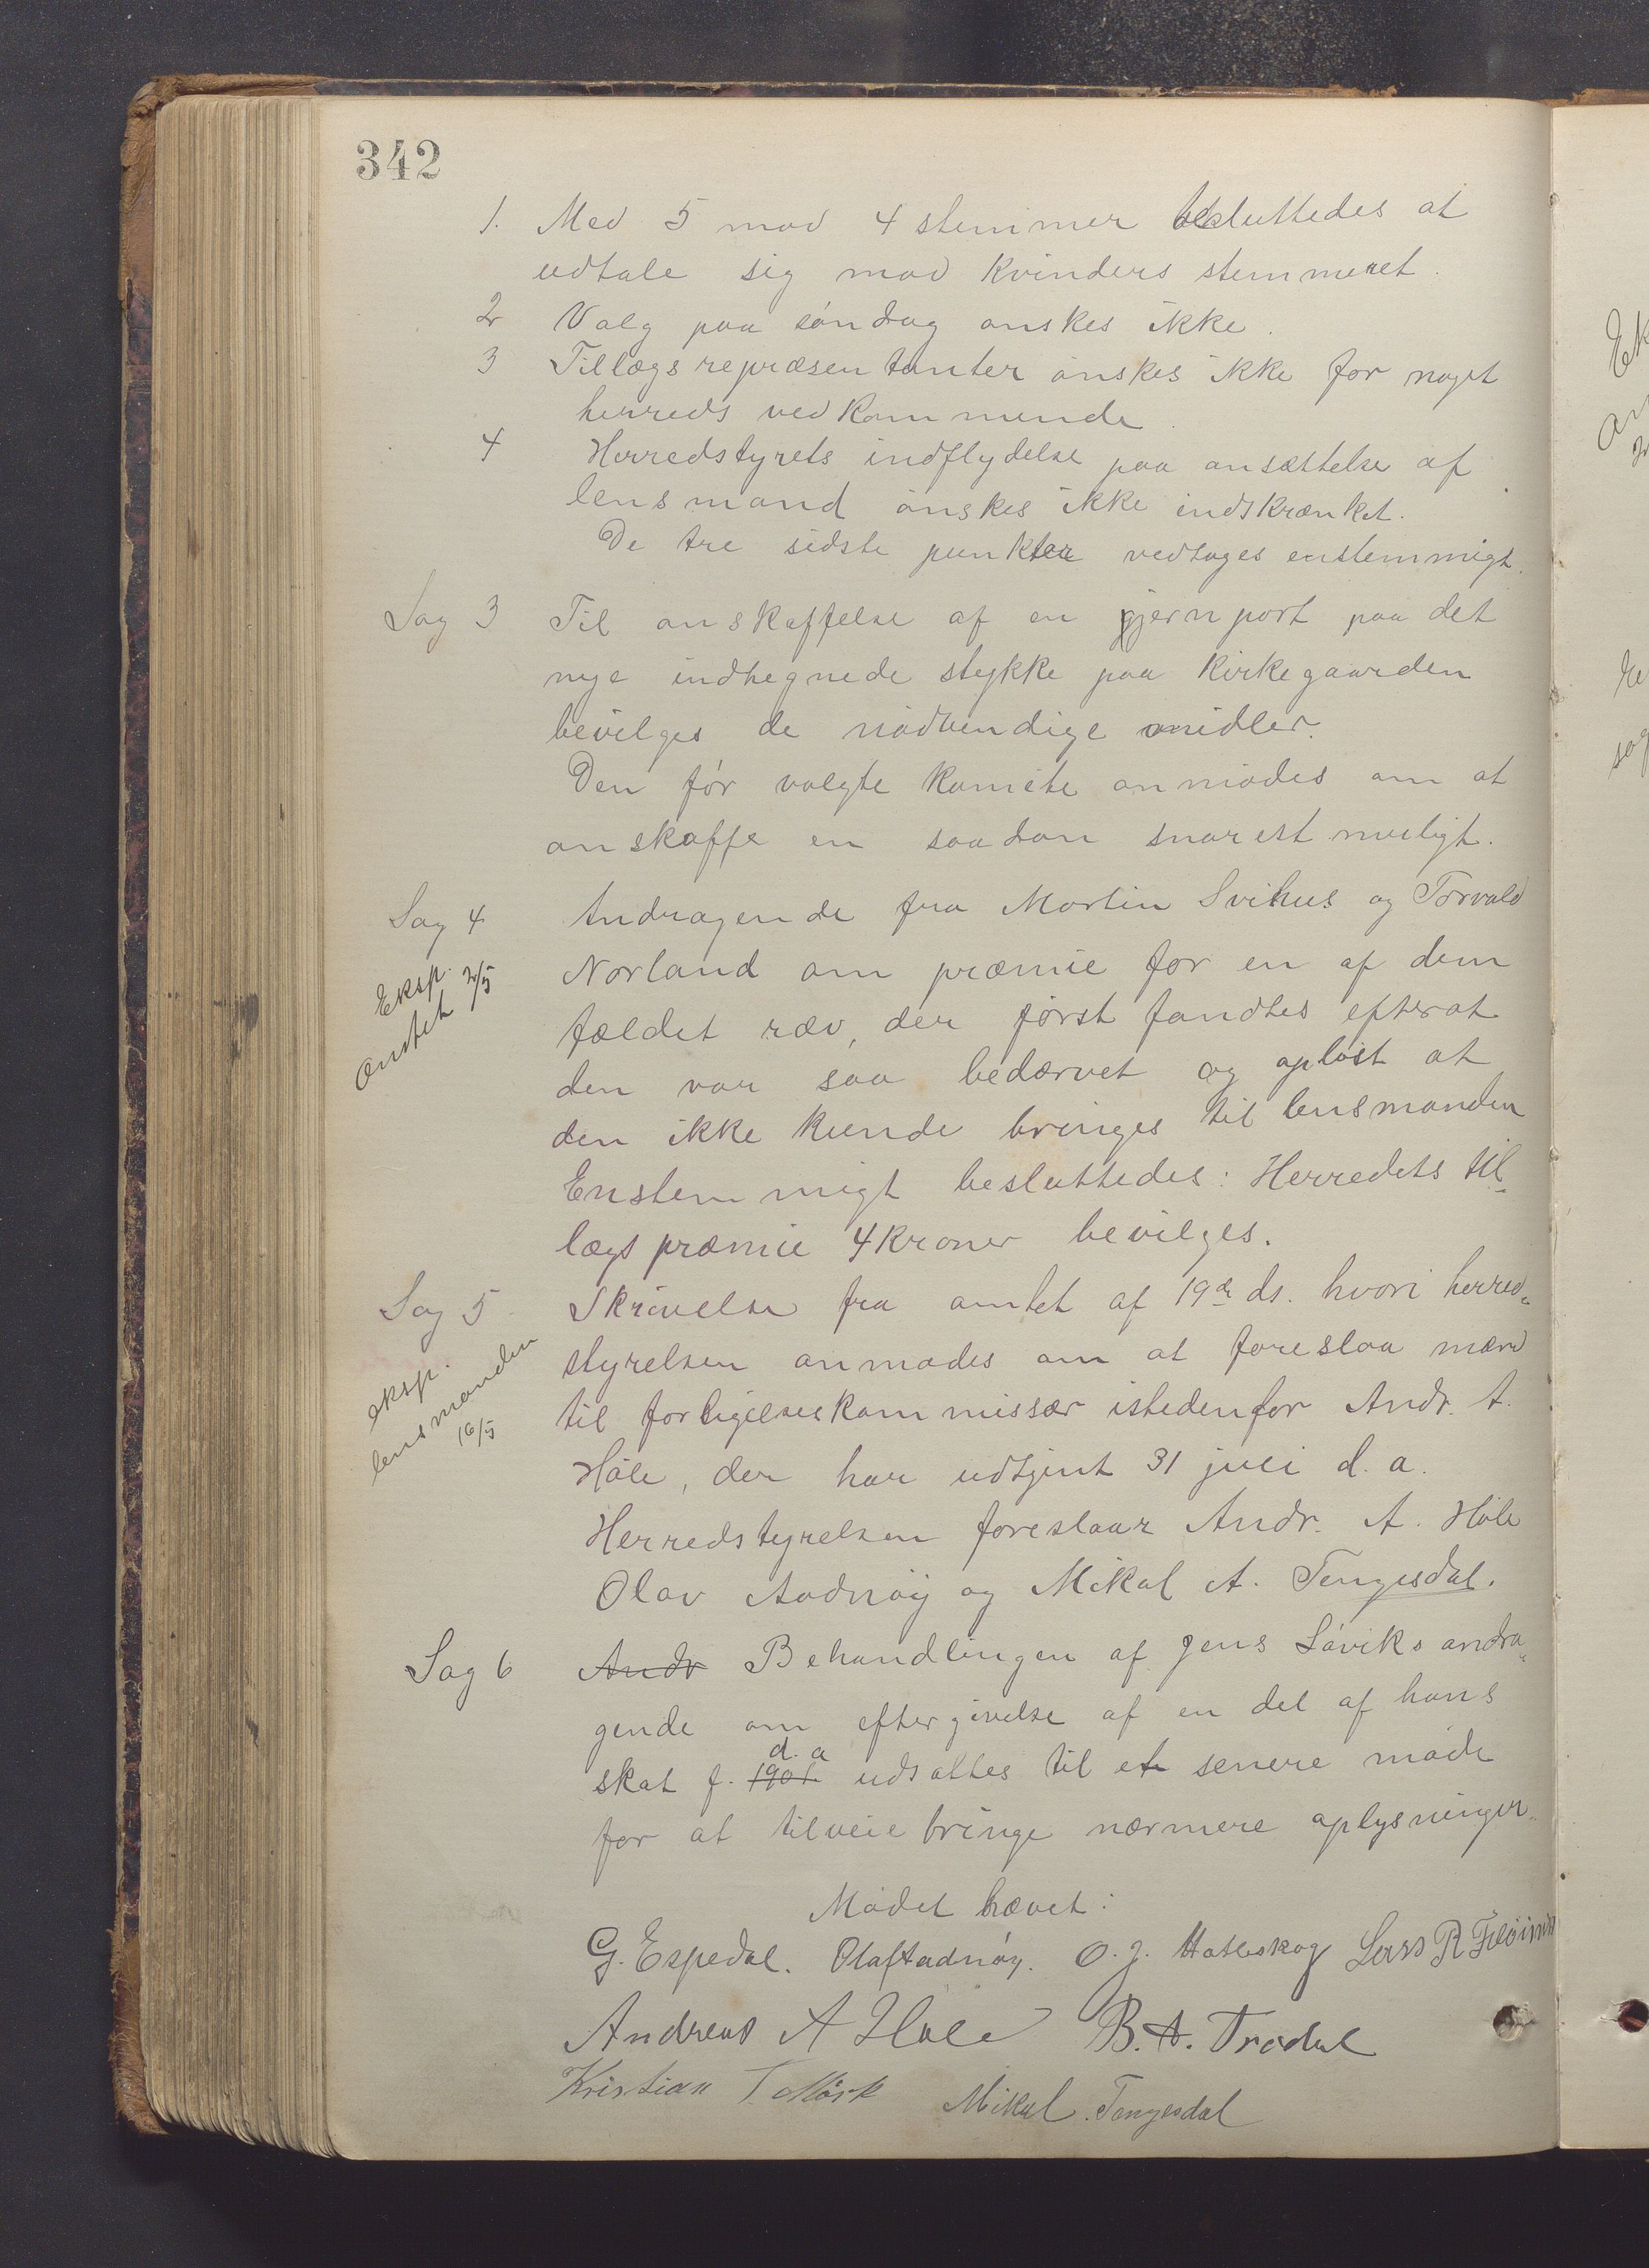 342
1. Med 5 mod 4 stemmer besluttedes at
udtale sig mod kvinders stemmeret.
2 Valg paa søndag ønskes ikke.
3 Tillægsrepræsentanter ønskes ikke for noget
herreds vedkommende.
4 Herredstyrets indflydelse paa ansættelse af
lensmand ønskes ikke indskrænket.
De tre sidste punkter vedtoges enstemmigt.
Sag 3 Til anskaffelse af en gjernport paa det
nye indhegnede stykke paa kirkegaarden
bevilges de nødvendige midler.
Den før valgte komite anmodes om at
anskaffe en saadan snarest muligt.
Sag 4 Andragende fra Martin Svihus og Torvald
Eksp. 2/5
Norland om præmie for en af dem
fældet ræv, der først fandtes efterat
amtet
den var saa bedærvet og opløst at
den ikke kunde bringes til lensmanden
Enstemmigt besluttedes: Herredets til-
lægs præmie 4 kroner bevilges.
Sag 5 Skrivelse fra amtet af 19de ds. hvori herred-
styrelsen anmodes om at foreslaa mænd
eksp.
lensmanden
16/5
til forligelseskommissær istedenfor Andr. A.
Høle, der har udtjent 31 juli d. a.
Herredstyrelsen foreslaar Andr. A. Høle
Olav Aadnøy og Mikal A. Tengesdal.
Sag 6 Andr Behandlingen af Jens Løviks andra-
gende om eftergivelse af en del af hans
d. a
skat f. 1901 udsattes til et senere møde
for at tilveiebringe nærmere oplysninger.
Mødet hævet:
G. Espedal. Olaf Aadnøy. O. J. Hatleskog Lars R
Andreas A Hole B. A. Trædal
Kristian T. Mørk Mikal Tengesdal